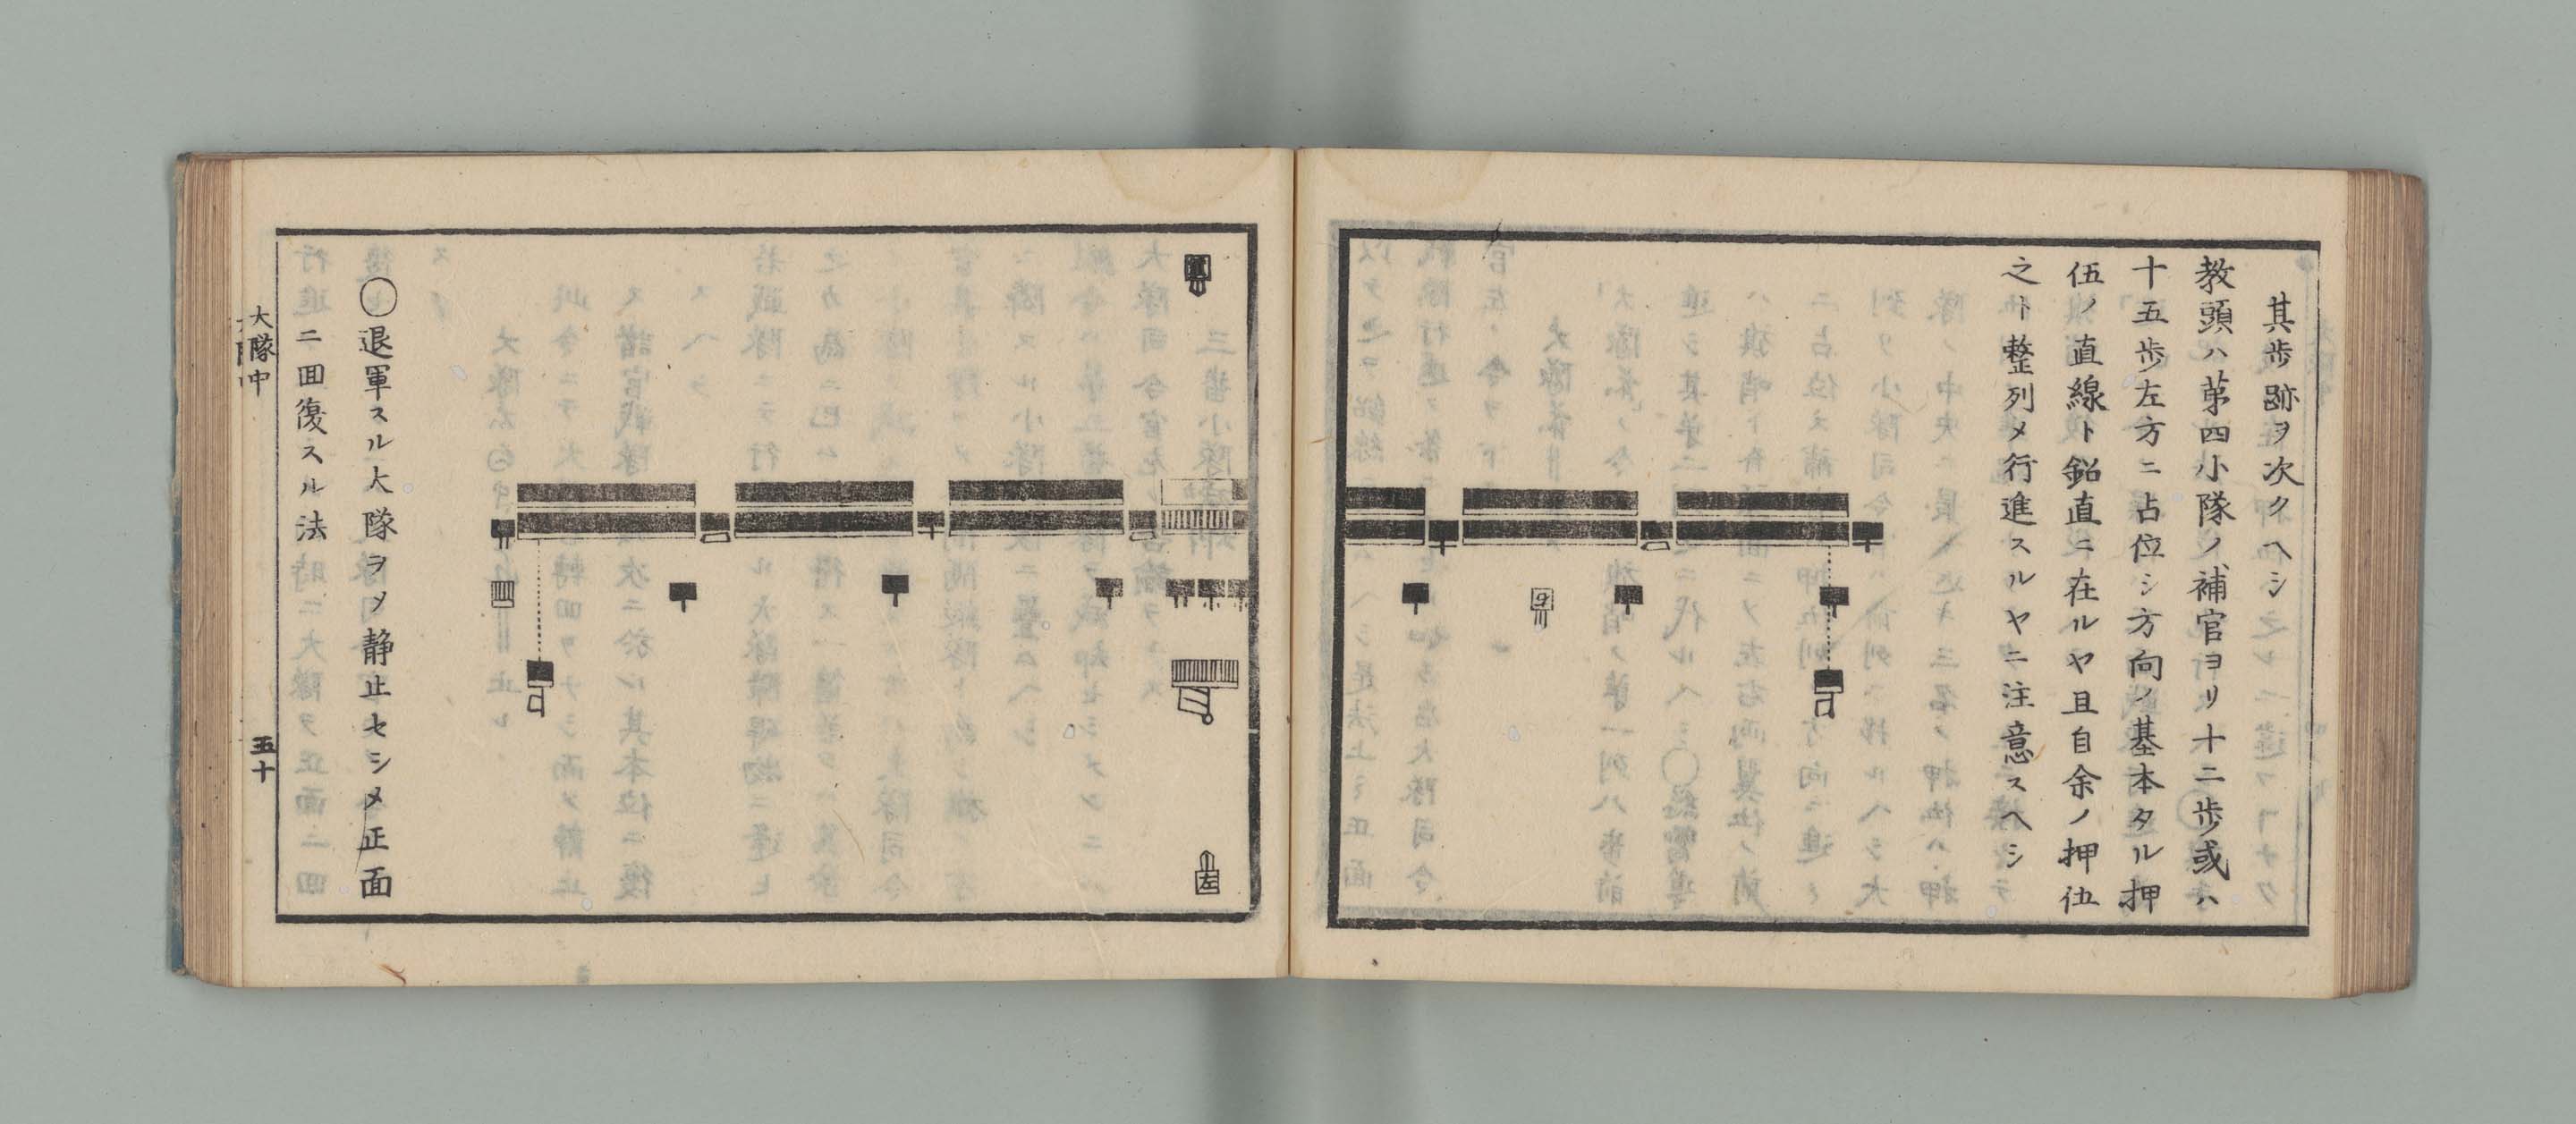 其歩跡ヲ次クヘシ
教頭ハ第四小隊ノ補官ヨリ十二歩或ハ
十五歩左方ニ占位シ方向ノ基本タル押
伍ノ直線ト鉛直ニ在ルヤ且自余ノ押伍
之ト整列メ行進スルヤニ注意スヘシ
左
〇退軍スル大隊ヲメ静止セシメ正面
ニ回復スル法
大隊中
五十